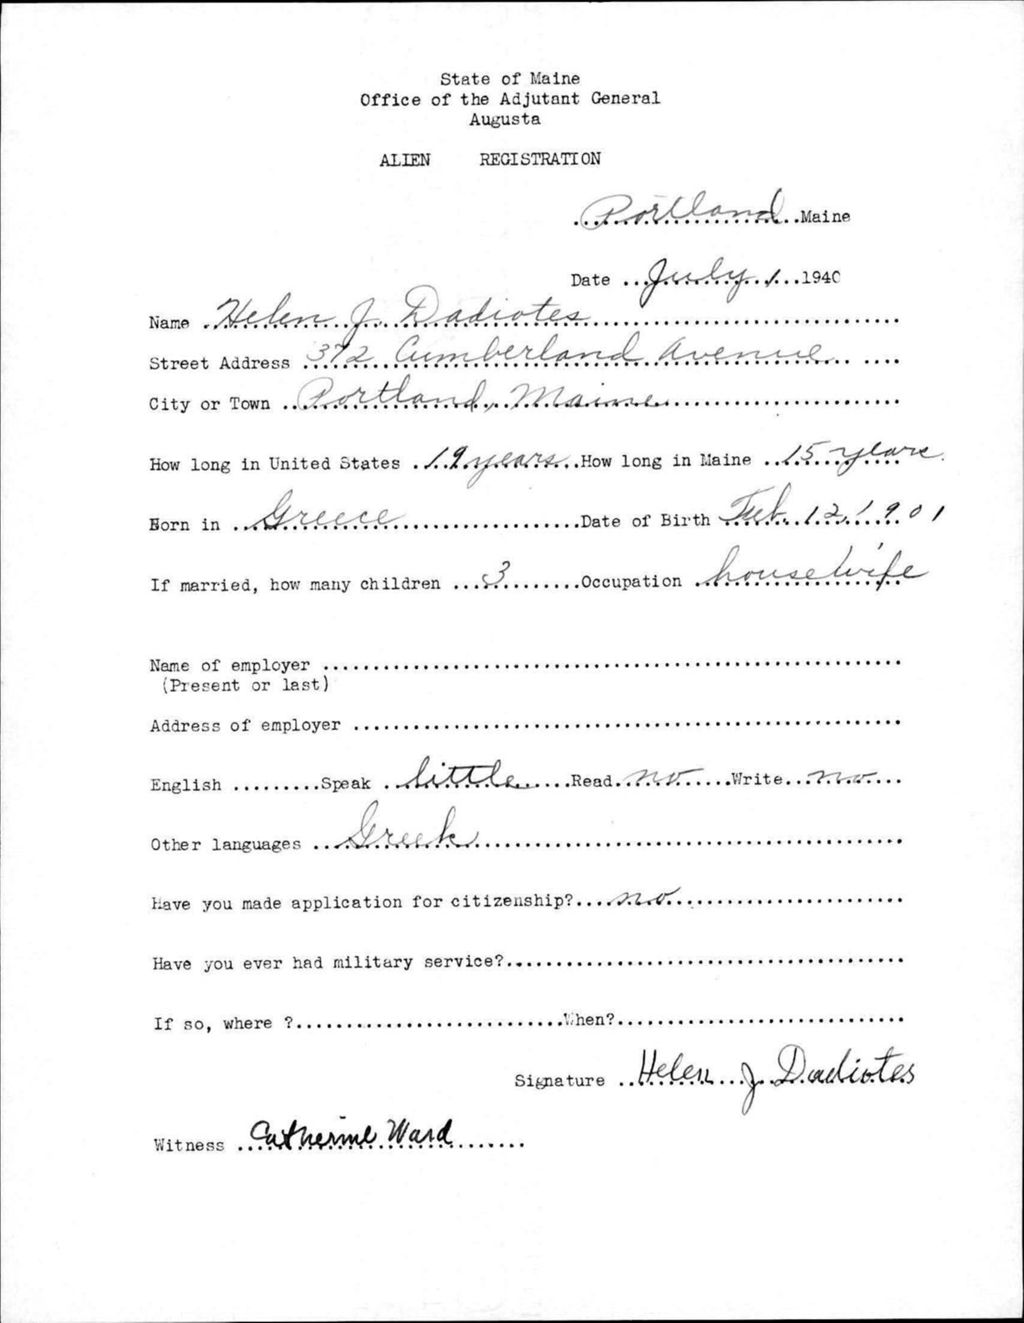 State of Maine
Office of the Adjutant General
Augusta
ALIEN REGISTRATION
Portland Maine
Date July 1 1940
Name Helen J. Dadiotes
Street Address 372 Cumberland Avenue
City or Town Portland, Maine
How long in United States 19 years How long in Maine 15 years
Born in Greece Date of Birth Feb. 12, 1901
If married, how many children 3 Occupation housewife
Name of employer
(Present or last)
Address of employer
English Speak little Read no Write no
Other languages Greek
Have you made application for citizenship? no
Have you ever had military service?
If so, where ? When?
Signature Helen J. Dadiotes
Witness Catherine Ward